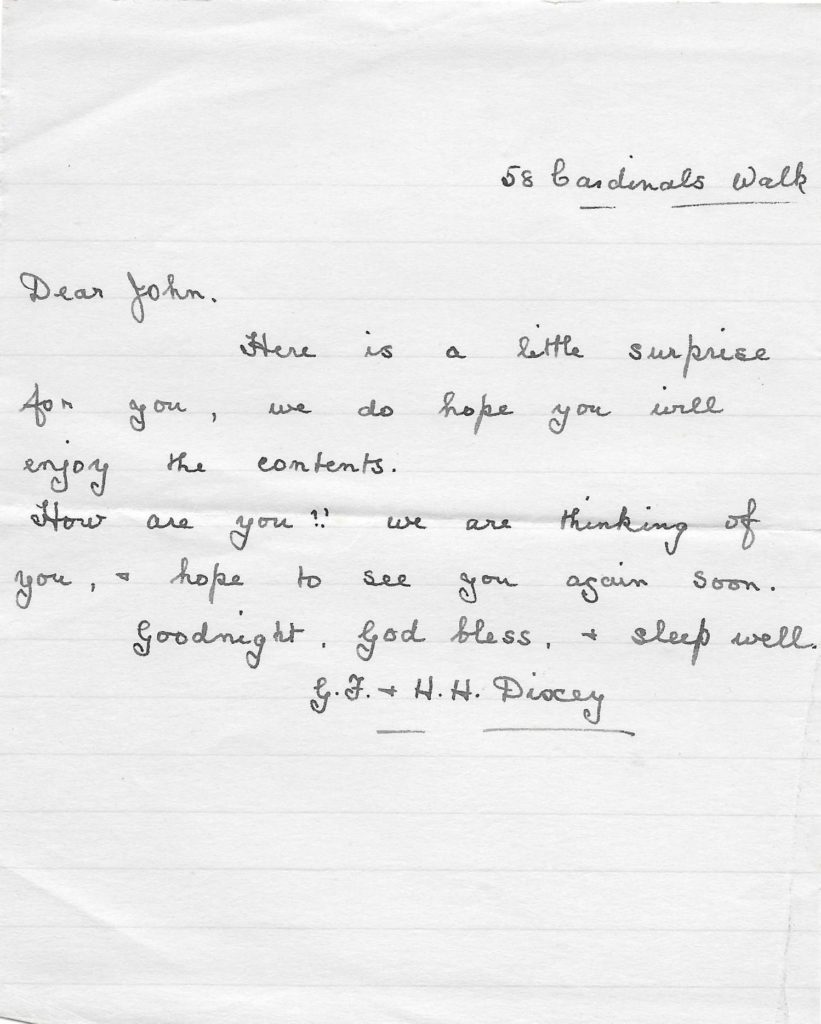 58 Cardinals Walk
Dear John.
Here is a little surprise
for you, we do hope you will
enjoy the contents.
How are you!! we are thinking of
you, + hope to see you again soon.
Goodnight, God bless, + sleep well.
G.F. + H.H. Dixey